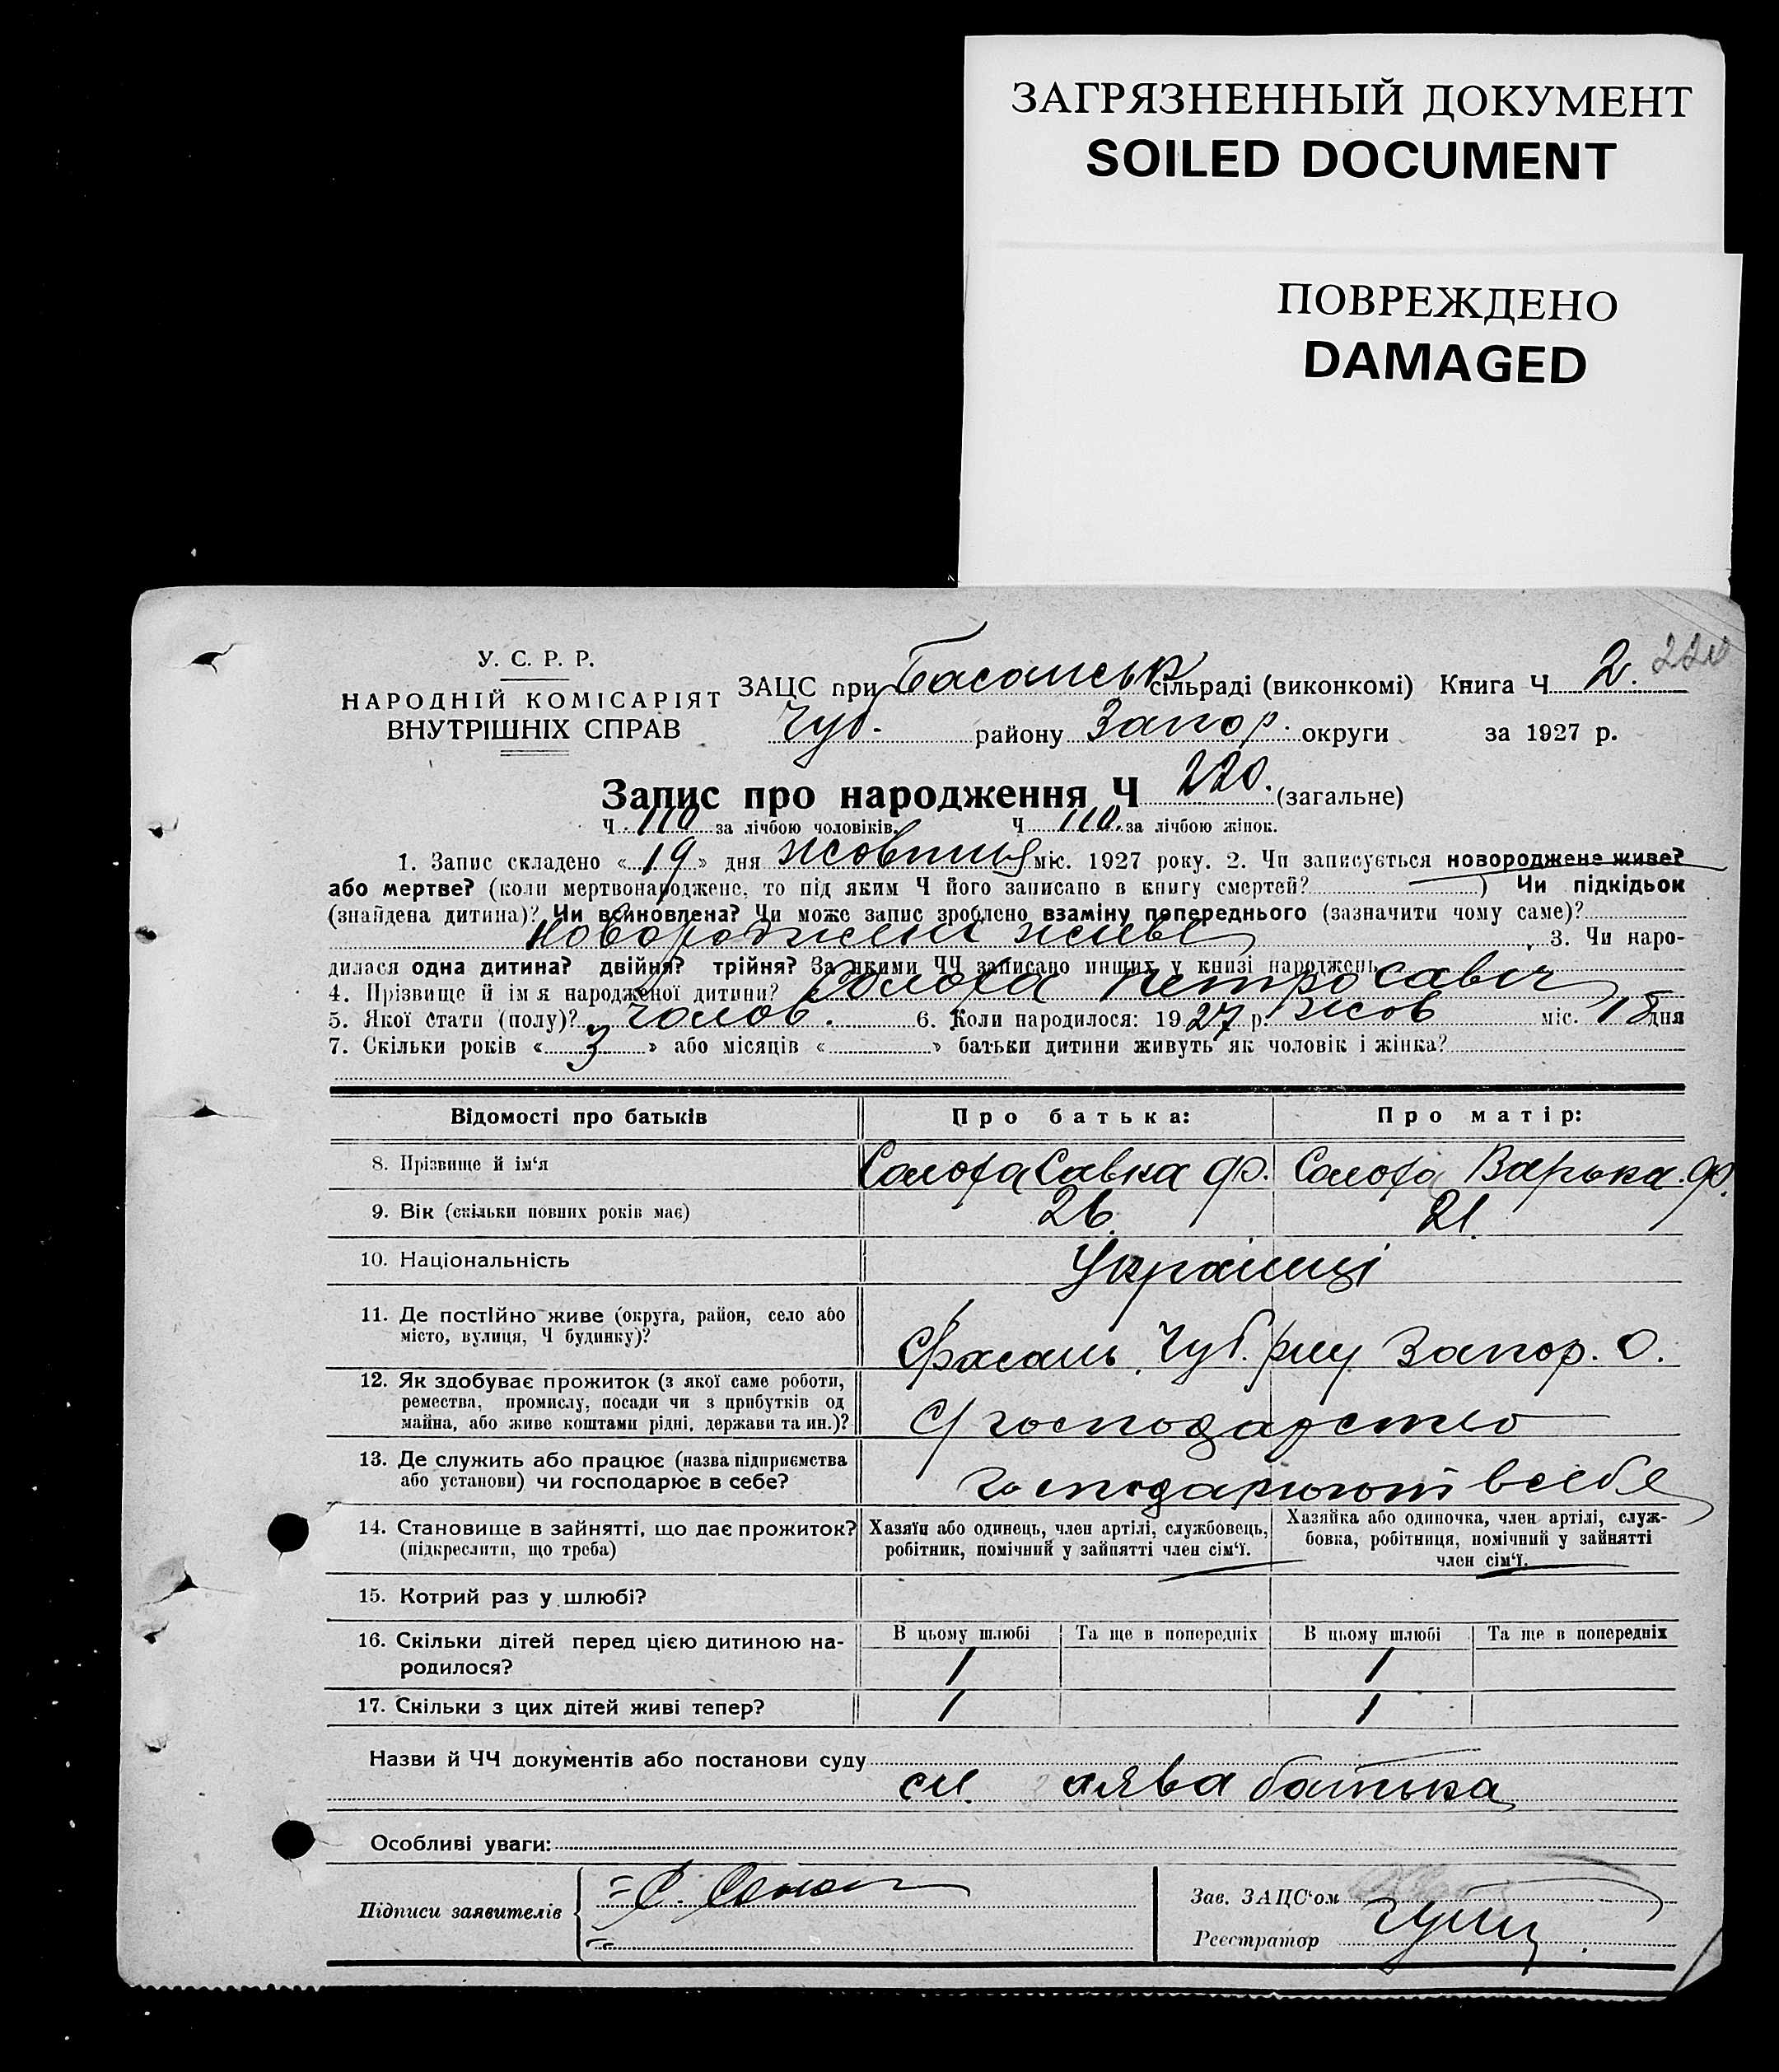 ЗАГРЯЗНЕННЫЙ ДОКУМЕНТ
SOILED DOCUMENT
ПОВРЕЖДЕНО
DAMAGED
У. С. Р. Р.
НАРОДНІЙ КОМІСАРІЯТ
ВНУТРІШНІХ СПРАВ
ЗАЦС при Басанськ сільраді (виконкомі) Книга Ч 2. 220
Чуб. району Запор. округи за 1927 р.
Запис про народження Ч 220. (загальне)
Ч. 110 за лічбою чоловіків. Ч 110. за лічбою жінок.
1. Запис складено «19» дня жовтня міс. 1927 року. 2. Чи записується новороджене живе?
або мертве? (коли мертвонароджене, то під яким Ч його записано в книгу смертей?) Чи підкідьок
(знайдена дитина)? Чи всиновлена? Чи може запис зроблено взаміну попереднього (зазначити чому саме)?
новороджене живе, 3. Чи наро-
дилася одна дитина? двійня? трійня? За якими ЧЧ записано инших у книзі народжень
4. Прізвище й ім'я народженої дитини? Солоха Петро Савич
5. Якої стати (полу)? Чолов. 6. Коли народилося: 1927 р. жов міс. 18 дня
7. Скільки років «3» або місяців « » батьки дитини живуть як чоловік і жінка?
Відомості про батьків Про батька: Про матір:
8. Прізвище й ім'я Солоха Савка Ф. Солоха Варька Ф.
9. Вік (скільки повних років має) 26. 21.
10. Національність Українці
11. Де постійно живе (округа, район, село або
місто, вулиця, Ч будинку)? Чуб. рну Запор. О.
12. Як здобуває прожиток (з якої саме роботи,
ремества, промислу, посади чи з прибутків од
майна, або живе коштами рідні, держави та ин.)? С/господарство
13. Де служить або працює (назва підприємства
або установи) чи господарює в себе? господарюют в себе
14. Становище в зайнятті, що дає прожиток?
(підкреслити, що треба)
Хазяїн або одинець, член артілі, службовець,
робітник, помічний у зайнятті член сім'ї.
Хазяйка або одиночка, член артілі, служ-
бовка, робітниця, помічний у зайнятті
член сім'ї.
15. Котрий раз у шлюбі?
16. Скільки дітей перед цією дитиною на-
родилося?
В цьому шлюбі Та ще в попередніх В цьому шлюбі Та ще в попередніх
1 1
17. Скільки з цих дітей живі тепер? 1 1
Назви й ЧЧ документів або постанови суду
сл. заява батька
Особливі уваги:
Підписи заявителів
Зав. ЗАЦС'ом
Реєстратор